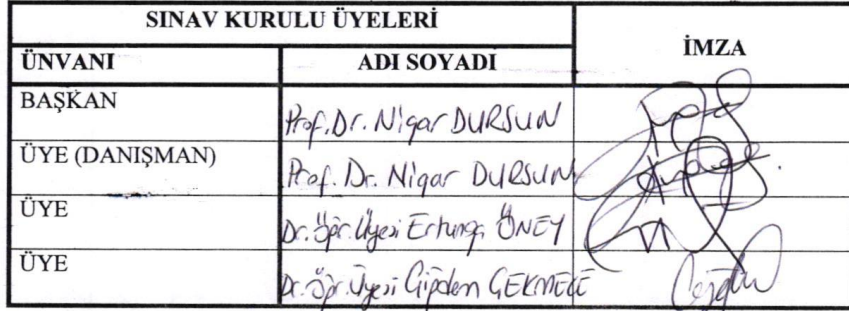 SINAV KURULU ÜYELERİ
İMZA
ÜNVANI ADI SOYADI
BAŞKAN Prof. Dr. Nigar DURSUN
ÜYE (DANIŞMAN) Prof. Dr. Nigar DURSUN
ÜYE Dr. Öğr. Üyesi Ertunga ÖNEY
ÜYE Dr. Öğr. Üyesi Çiğdem